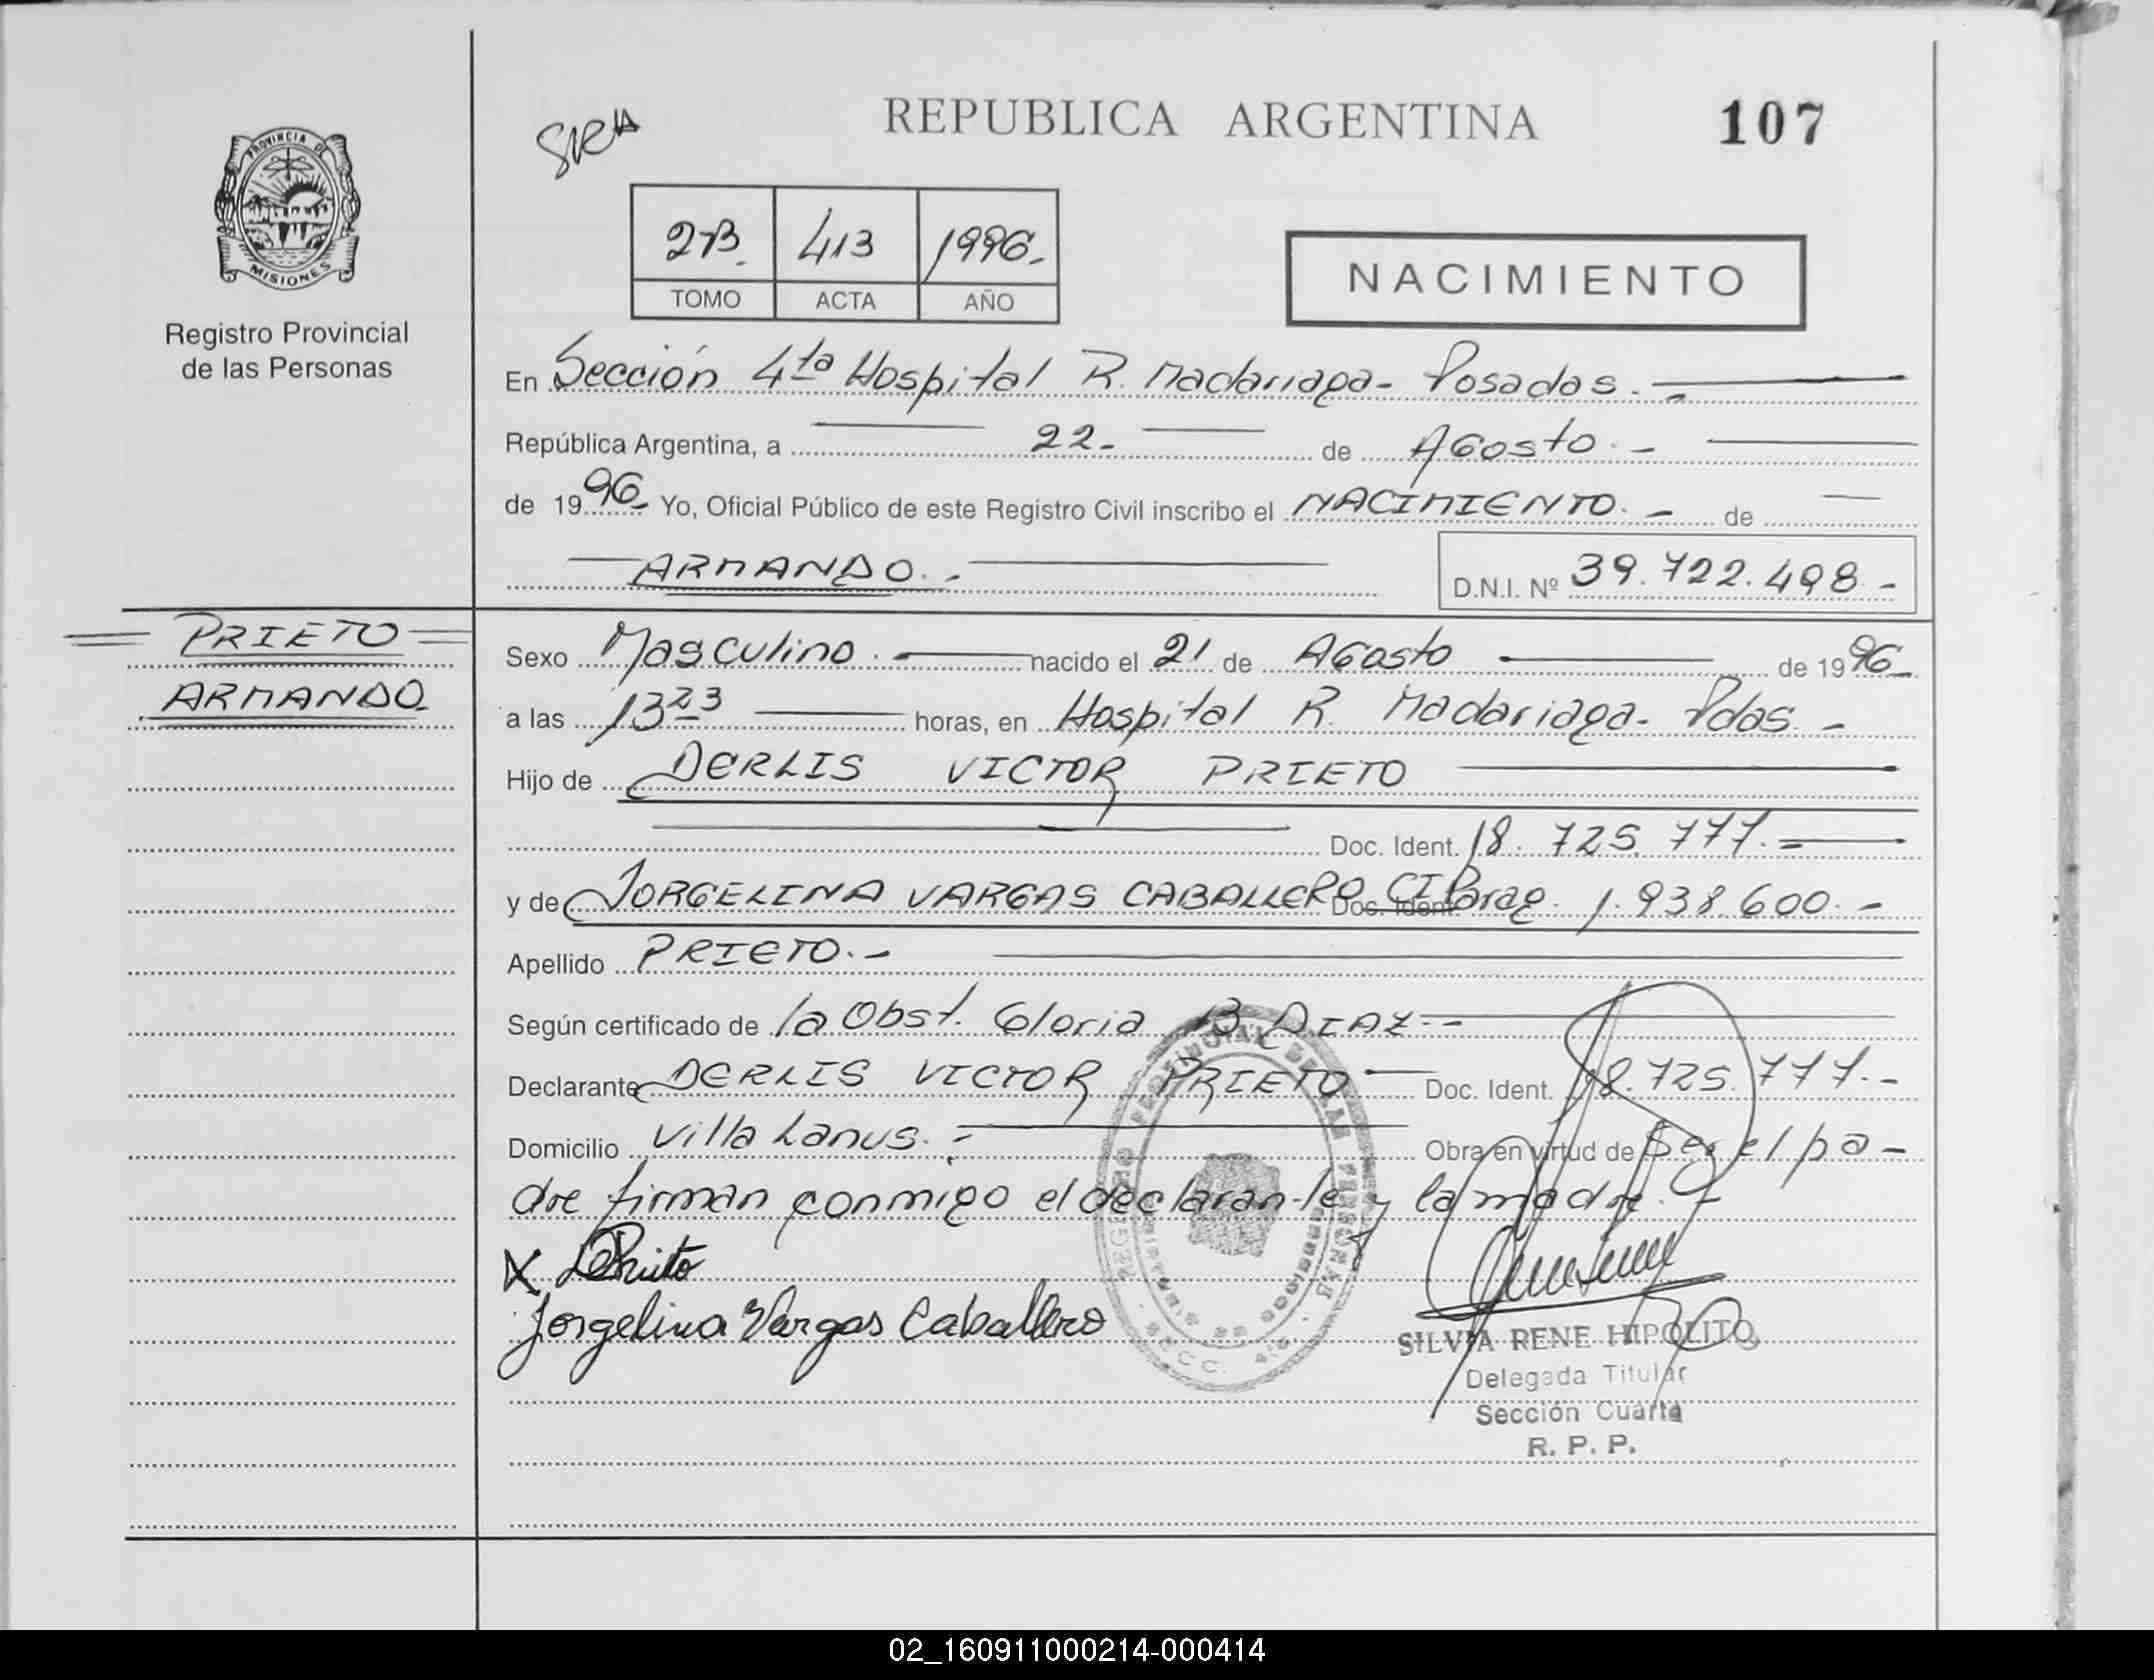 REPUBLICA ARGENTINA
107
PROVINCIA DE
MISIONES
Registro Provincial
de las Personas
2B. 413 1996.-
TOMO ACTA AÑO
NACIMIENTO
En Sección 4ta Hospital R. Madariaga- Posadas.-
República Argentina, a 22- de Agosto.-
de 1996- Yo, Oficial Público de este Registro Civil inscribo el NACIMIENTO.- de
ARMANDO.- D.N.I. Nº 39.722.498.-
PRIETO
ARMANDO-
Sexo Masculino.- nacido el 21 de Agosto de 1996-
a las 13 23 horas, en Hospital R. Madariaga- Pdas.-
Hijo de DERLIS VICTOR PRIETO
Doc. Ident. 18.725.777.=
y de JORGELINA VARGAS CABALLERO Doc. Ident. CI Parag. 1.938.600.-
Apellido PRIETO.-
Según certificado de la Obst. Gloria B DIAZ.-
Declarante DERLIS VICTOR PRIETO Doc. Ident. 18.725.777.-
Domicilio Villa Lanus.- Obra en virtud de Ser el pa-
dre firman conmigo el declarante y la madre.-
X DPrieto
Jorgelina Vargas Caballero
REGISTRO PROVINCIAL DE LAS PERSONAS
SECC. 4ta
SILVIA RENE HIPOLITO
Delegada Titular
Sección Cuarta
R. P. P.
02_160911000214-000414